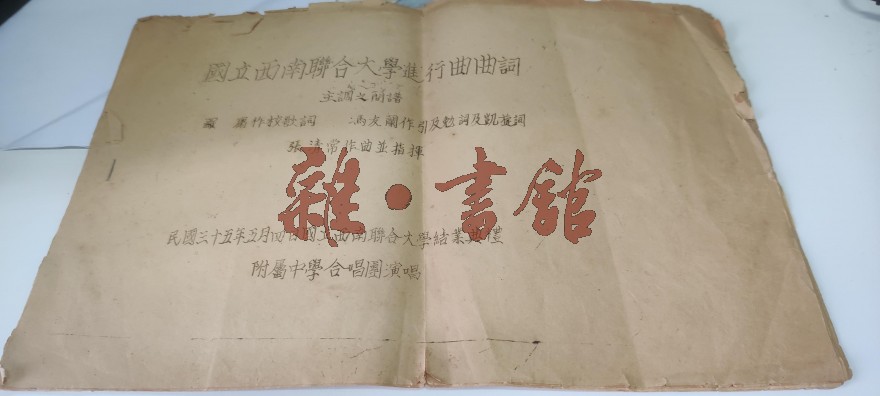 國立西南聯合大學進行曲曲詞
主調之簡譜
羅庸作校歌詞 馮友蘭作引及勉詞及凱旋詞
張清常作曲並指揮
雜·書館
民國三十五年五月四日國立西南聯合大學結業典禮
附屬中學合唱團演唱